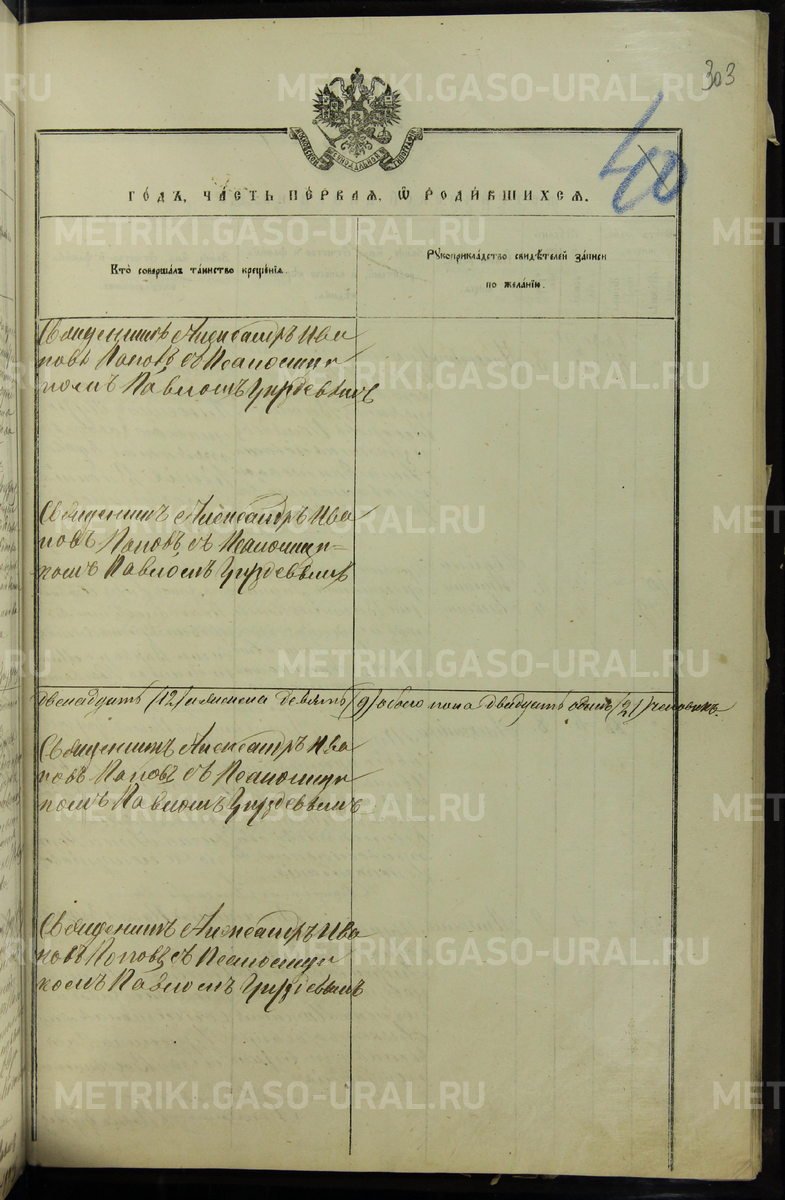 303
METRIKI.GASO-URAL.RU
МОСКОВСКОЙ СѴНОДАЛЬНОЙ ТИПОГРАФІИ
40
ГО́ДЪ, ЧА́СТЬ ПЕ́РВАЯ, Ѡ҆ РОДИ́ВШИХСЯ.
Кто̀ соверша́лъ та́инство креще́нія.
Рꙋкоприкла́дство свидѣ́телей за́писи
по жела́нію.
Священникъ Александръ Ива
новъ Поповъ съ Псаломщи
комъ Павломъ Груздевымъ
METRIKI.GASO-URAL.RU
Священникъ Александръ Ива
новъ Поповъ съ Псаломщи=
комъ Павломъ Груздевымъ
METRIKI.GASO-URAL.RU
двенадцать /12/ и женска девять /9/ обоего пола двадцать одинъ /21/ человѣкъ.
Священникъ Александръ Ива
новъ Поповъ съ Псаломщи
комъ Павломъ Груздевымъ
METRIKI.GASO-URAL.RU
Священникъ Александръ Ива
новъ Поповъ съ Псаломщи
комъ Павломъ Груздевымъ
METRIKI.GASO-URAL.RU